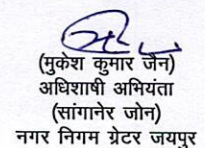 (मुकेश कुमार जैन)
अधिशाषी अभियंता
(सांगानेर जोन)
नगर निगम ग्रेटर जयपुर